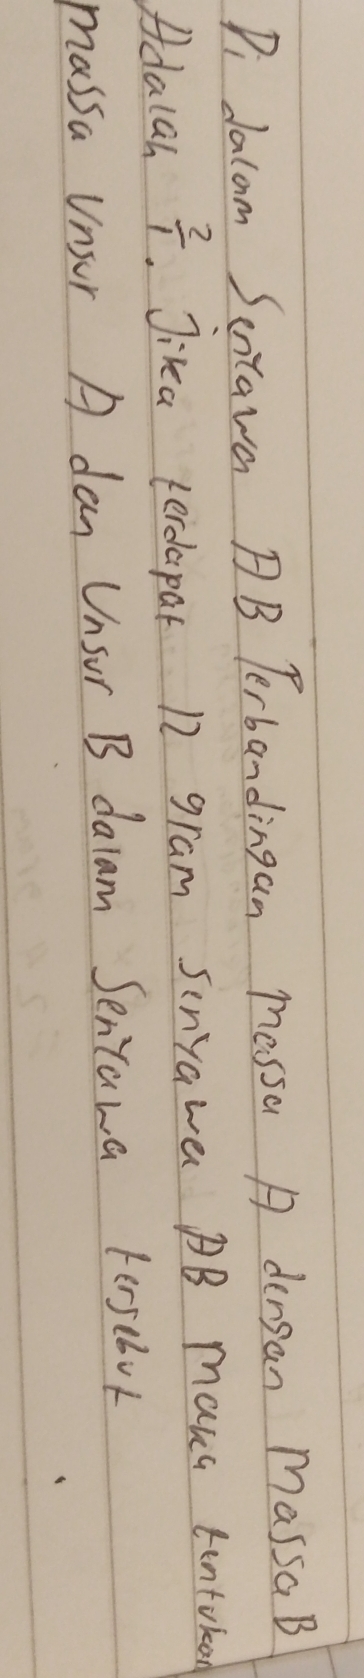 Di dalam Senyawa AB Perbandingan massa A dengan Massa B
Adalah 2/1. Jika terdapat 12 gram senyawa AB Maka tentukan
massa Unsur A dan Unsur B dalam Senyawa tersebut